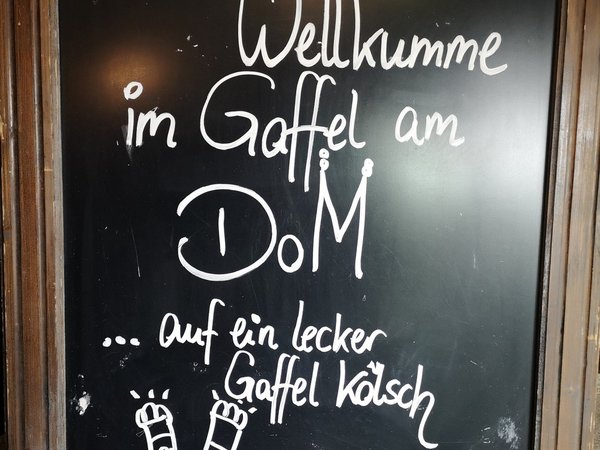 Wellkumme
im Gaffel am
DoM
... auf ein lecker
Gaffel Kölsch